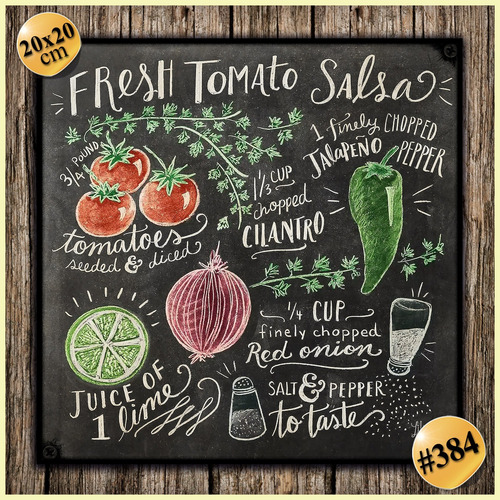 20x20
cm
FRESH TOMATO SALSA
1 finely CHOPPED
JALAPEÑO PEPPER
3/4 POUND
tomatoes
seeded & diced
1/3 CUP
chopped
CILANTRO
1/4 CUP
finely chopped
Red onion
JUICE OF
1 lime
SALT & PEPPER
to taste
#384